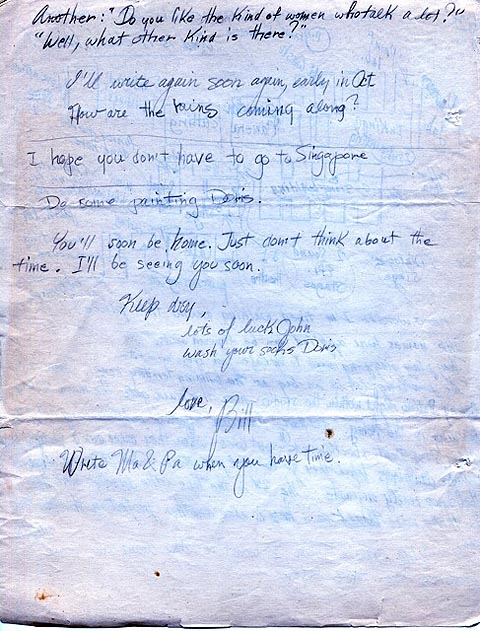 Another: "Do you like the kind of women who talk a lot?"
"Well, what other kind is there?"
I'll write again soon again, early in Oct
How are the rains coming along?
I hope you don't have to go to Singapore
Do some painting Doris.
You'll soon be home. Just don't think about the
time. I'll be seeing you soon.
Keep dry,
lots of luck John
wash your socks Doris
love,
Bill
Write Ma & Pa when you have time.